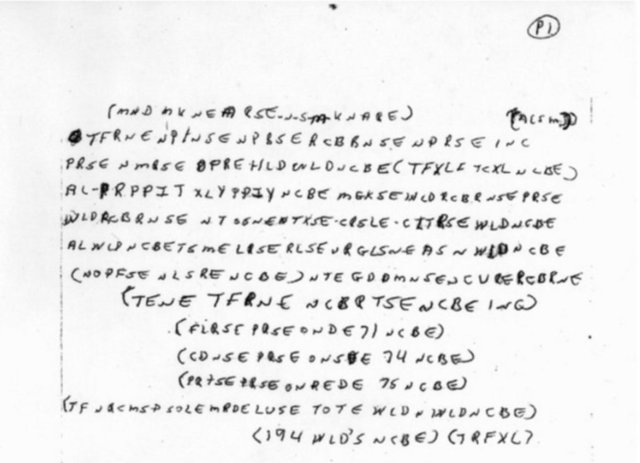 P1
(MND MKNEARSE-N-S-M-KNARE) (ACSM)
TFRNENPINSENPRSERCBRNSENPRSEINC
PRSENMRSEOPREHLDWLDNCBE(TFXLF TCXLNCBE)
AL-PRPPIT XLYPPIYNCBE MGKSEWLDRCBRNSEPRSE
WLDRCBRNSE NTOSNENTXSE-CRSLE-CITRSEWLDNCBE
ALWLPNCBETSMELRSERLSEURGLSNEASNWLDNCBE
(NOPFSENLSRENCBE)NTEGDDMNSENCURERCBRNE
(TENE TFRNE NCBRTSENCBEING)
(FLRSEPRSEONDE71NCBE)
(CDNSEPRSEONSDE74NCBE)
(PRTSEPRSEONREDE75NCBE)
(TFNQCMSPSOLEMRDELUSE TOTEWLDNWLDNCBE)
(194WLD'SNCBE)(TRFXL)